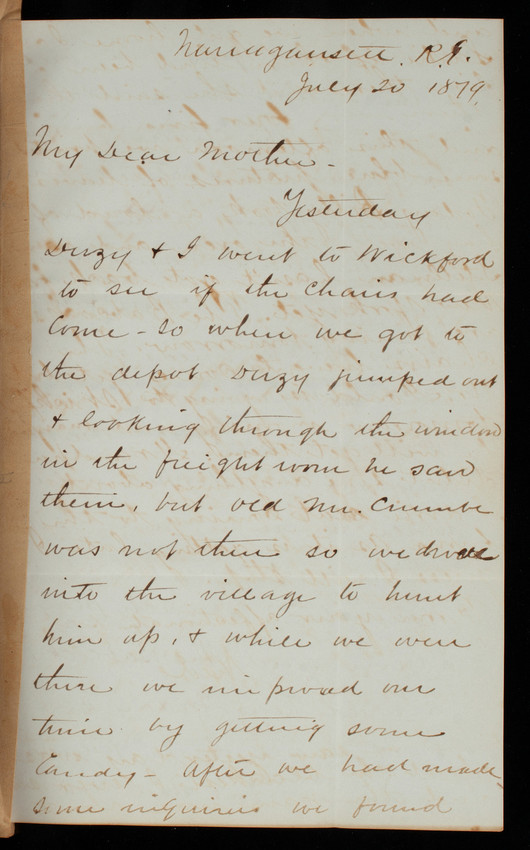 Narragansett. R.I.
July 20 1879.
My Dear Mother -
Yesterday
& I went to Wickford
to see if the chairs had
come - so when we got to
the depot jumped out
& looking through the window
in the freight room he saw
them, but old Mr.
was not there so we drove
into the village to hunt
him up, & while we were
there we improved our
time by getting some
Candy - After we had made
some inquiries we found